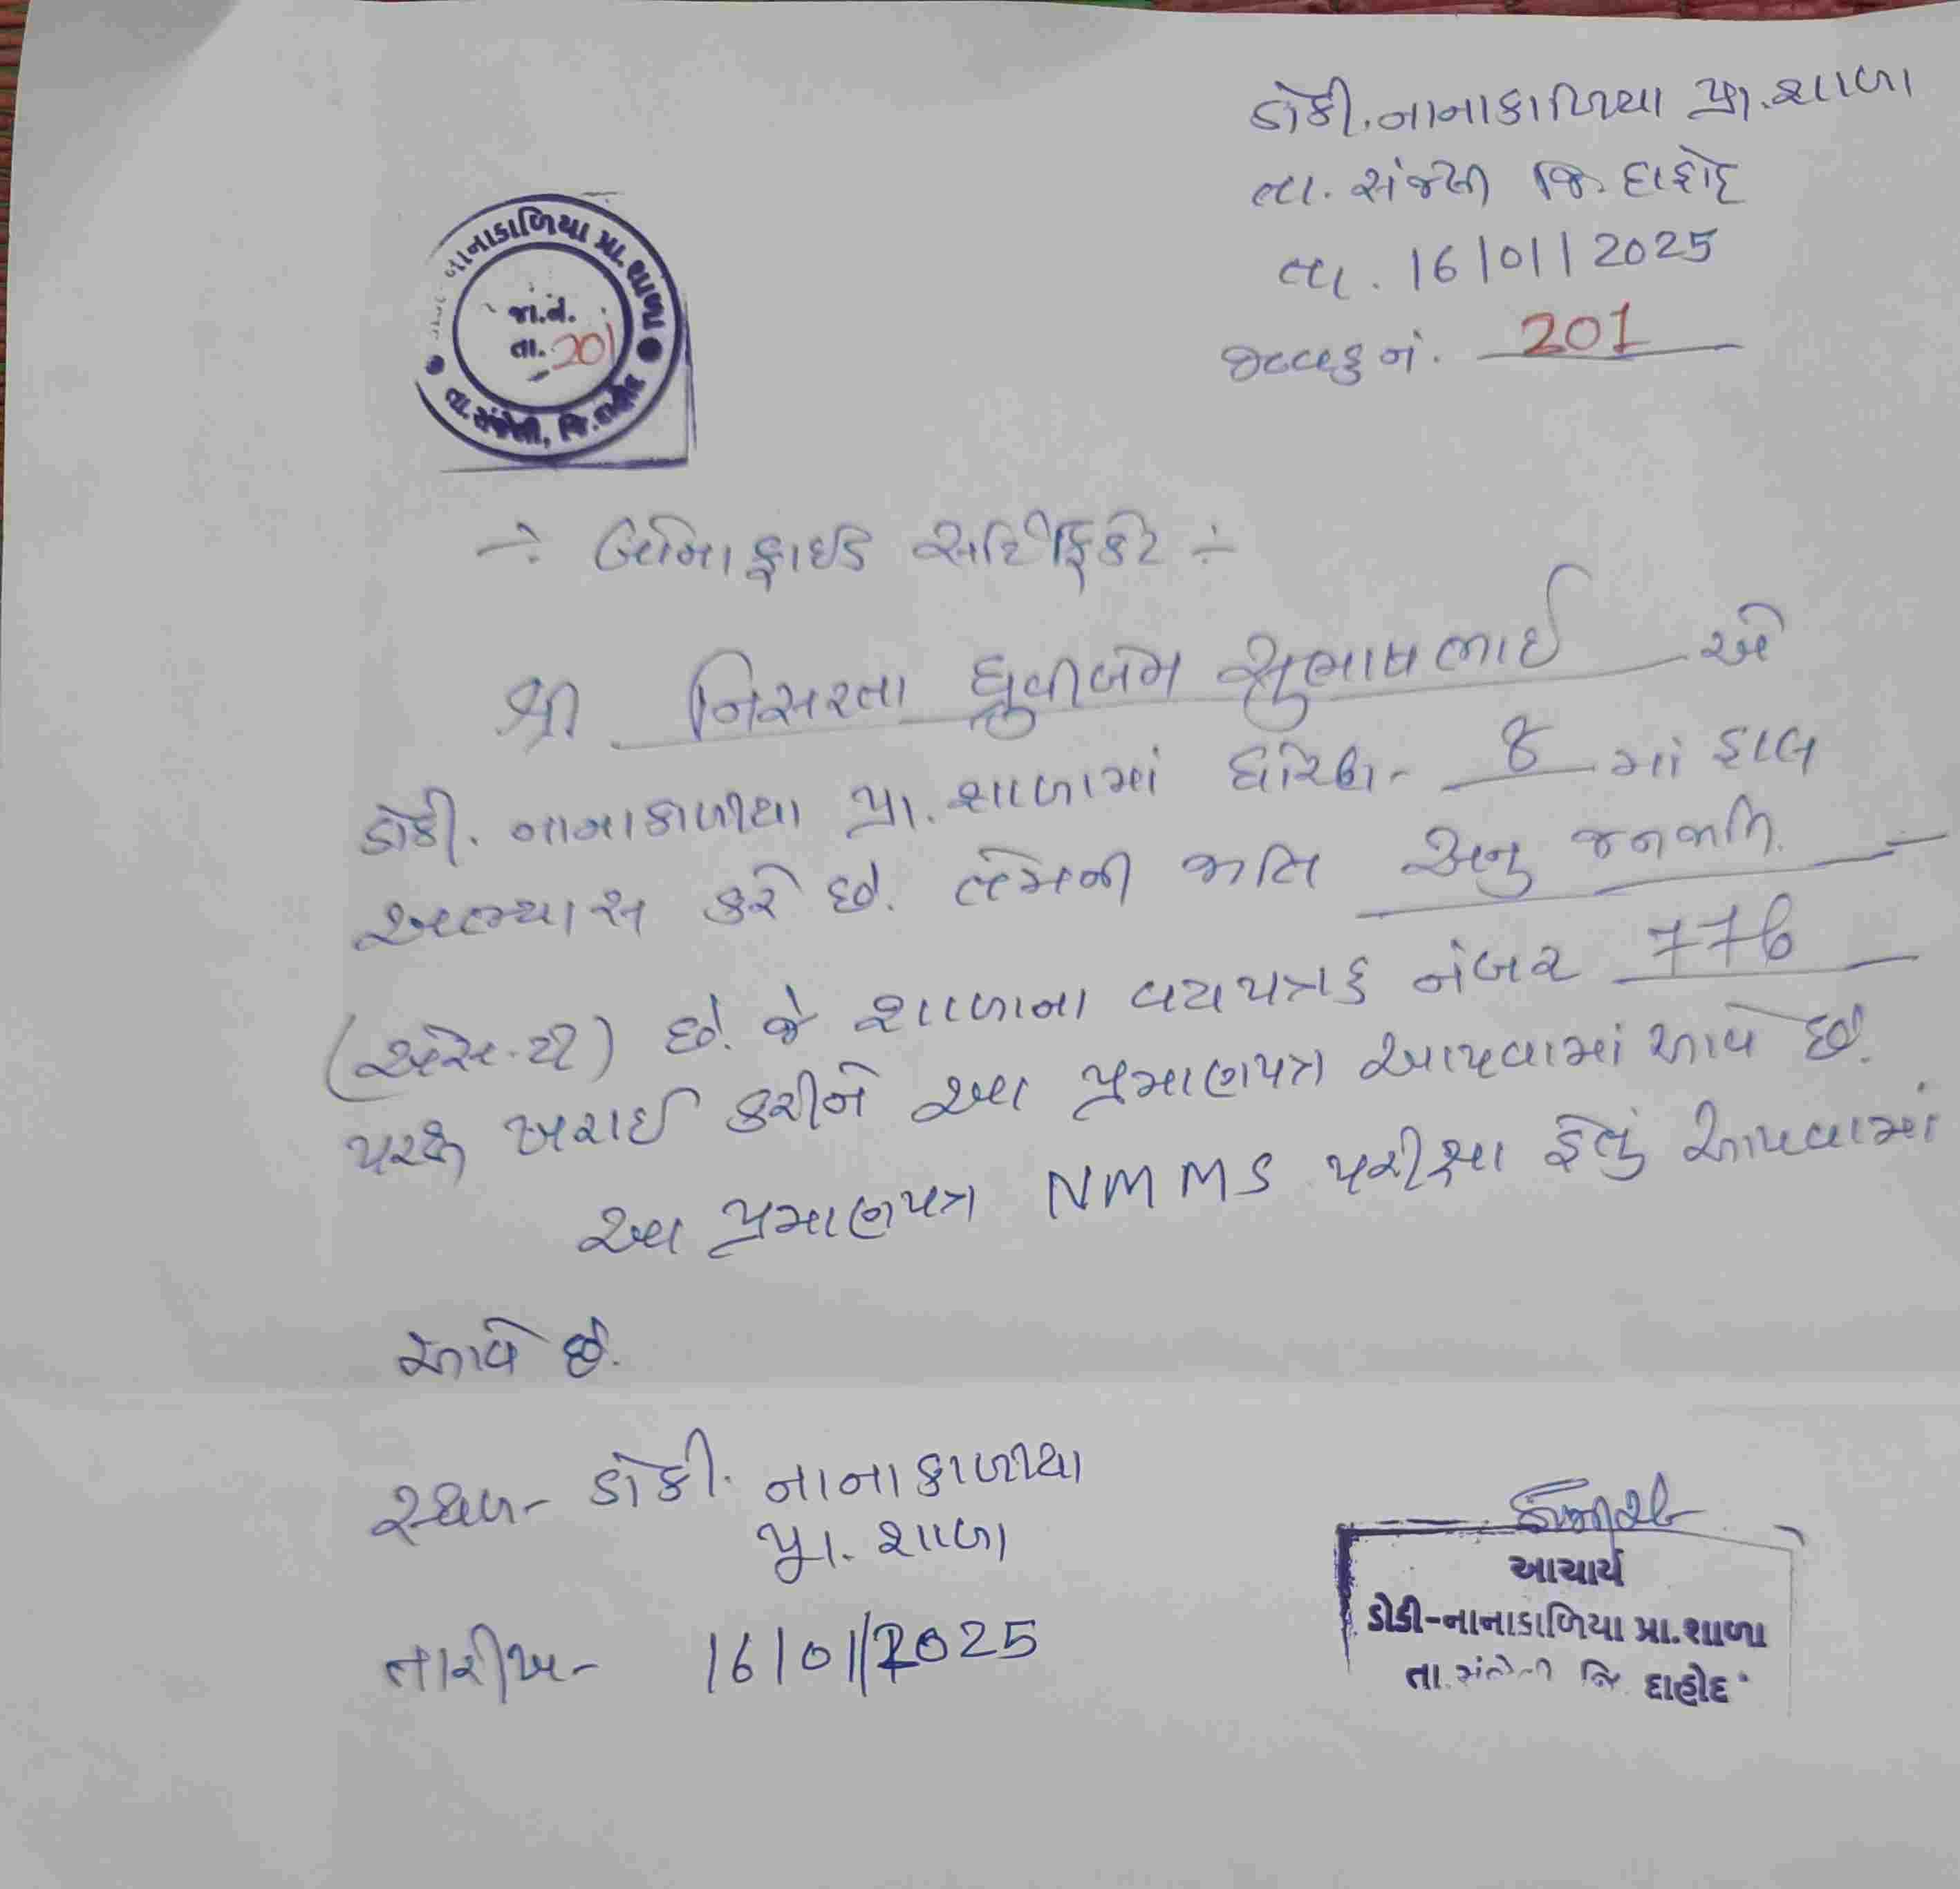 ડોકી.નાનાકાળિયા પ્રા.શાળા
તા. સંજેલી જિ. દાહોદ
તા. 16/01/2025
જાવક નં. 201
નાનાકાળિયા પ્રા. શાળા
જા.નં.
તા. 201
તા.સંજેલી, જિ.દાહોદ
-: બોનાફાઇડ સર્ટિફિકેટ :-
શ્રી નિસરતા ધ્રુવીબેન સુભાષભાઈ એ
ડોકી. નાનાકાળીયા પ્રા. શાળામાં ધોરણ- 8 માં હાલ
અભ્યાસ કરે છે. તેમની જાતિ અનુ જનજાતિ.
(એસ.ટી) છે. જે શાળાના વયપત્રક નંબર 776
પરથી ખરાઈ કરીને આ પ્રમાણપત્ર આપવામાં આવે છે.
આ પ્રમાણપત્ર NMMS પરીક્ષા હેતું આપવામાં
આવે છે.
સ્થળ- ડોકી. નાનાકાળીયા
પ્રા. શાળા
તારીખ- 16/01/2025
આચાર્ય
ડોકી-નાનાકાળિયા પ્રા.શાળા
તા. સંજેલી જિ. દાહોદ